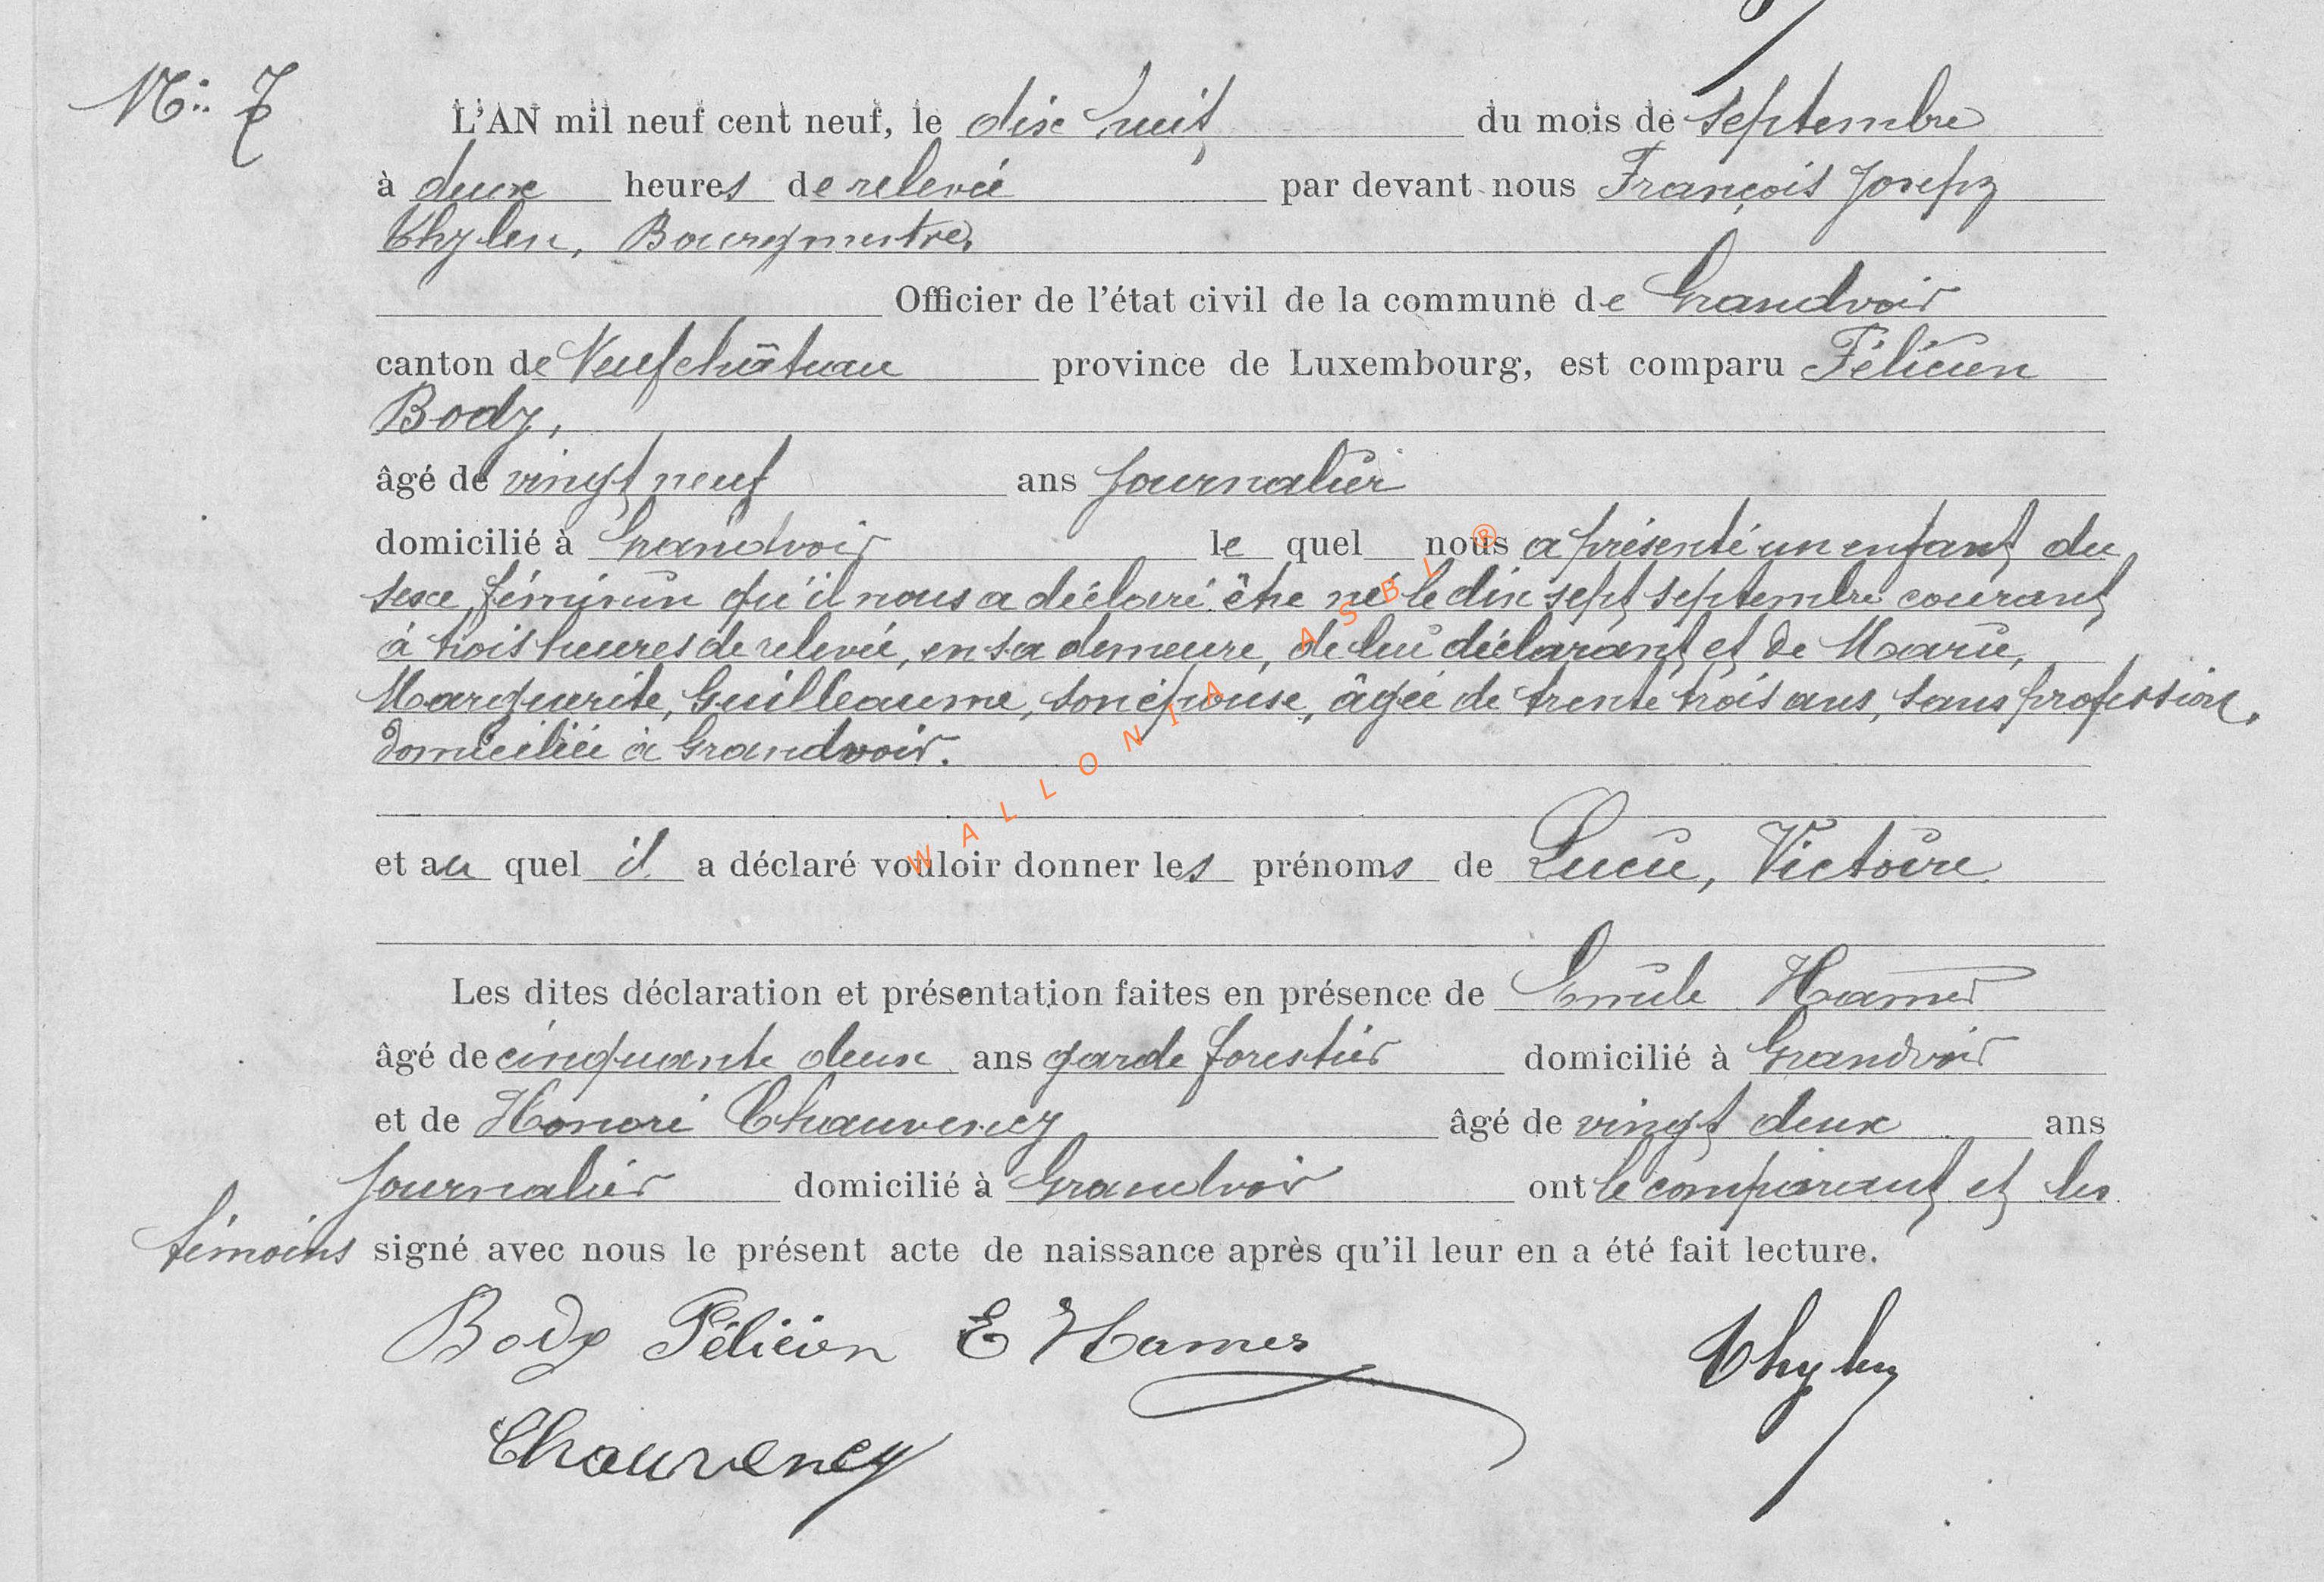 N° 7
L'AN mil neuf cent neuf, le dix huit du mois de septembre
à deux heures de relevée par devant nous François Joseph
Thylen, Bourgmestre,
Officier de l'état civil de la commune de Grandvoir
canton de Neufchâteau province de Luxembourg, est comparu Félicien
Body,
âgé de vingt neuf ans journalier
domicilié à Grandvoir le quel nous a présenté un enfant du
sexe féminin qu'il nous a déclaré être né le dix sept septembre courant
à trois heures de relevée, en sa demeure, de lui déclarant et de Marie,
Marguerite, Guilleaume, son épouse, âgée de trente trois ans, sans profession,
domiciliée à Grandvoir.
et au quel il a déclaré vouloir donner les prénoms de Lucie, Victoire
Les dites déclaration et présentation faites en présence de Emile Hamer
âgé de cinquante deux ans garde forestier domicilié à Grandvoir
et de Honoré Chauvency âgé de vingt deux ans
journalier domicilié à Grandvoir ont le comparant et les
témoins signé avec nous le présent acte de naissance après qu'il leur en a été fait lecture.
Body Félicien E Hamer Thylen
Chauvency
WALLONIA ASBL ®